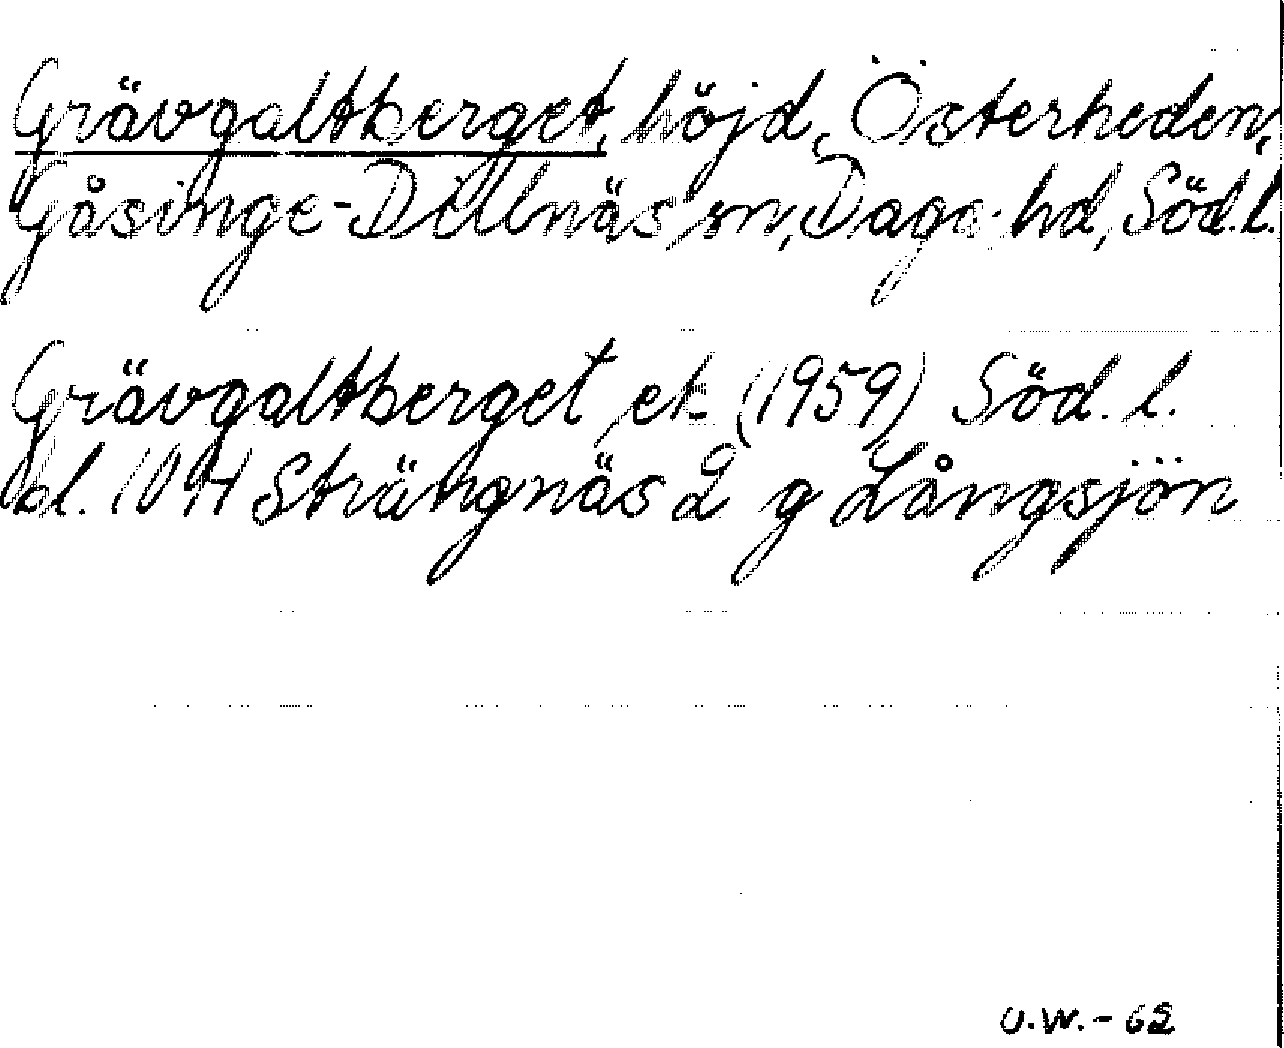 Grävgaltberget, höjd, Österheden,
Gåsinge-Dillnäs sn, Daga hd, Söd.l.
Grävgaltberget ek (1959) Söd. l.
bl. 10 9H Strängnäs g Långsjön
U.W.-62